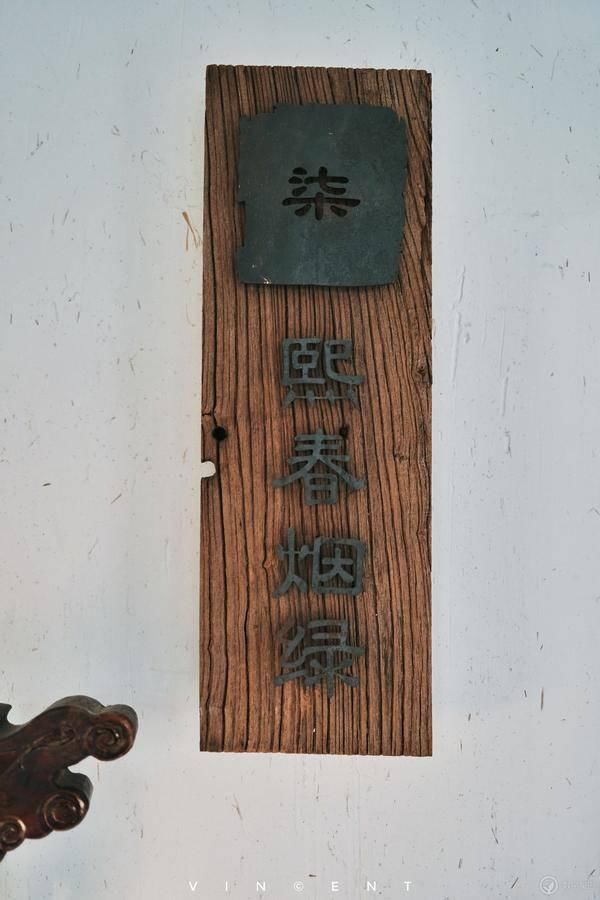 柒
熙春烟绿
VIN©ENT